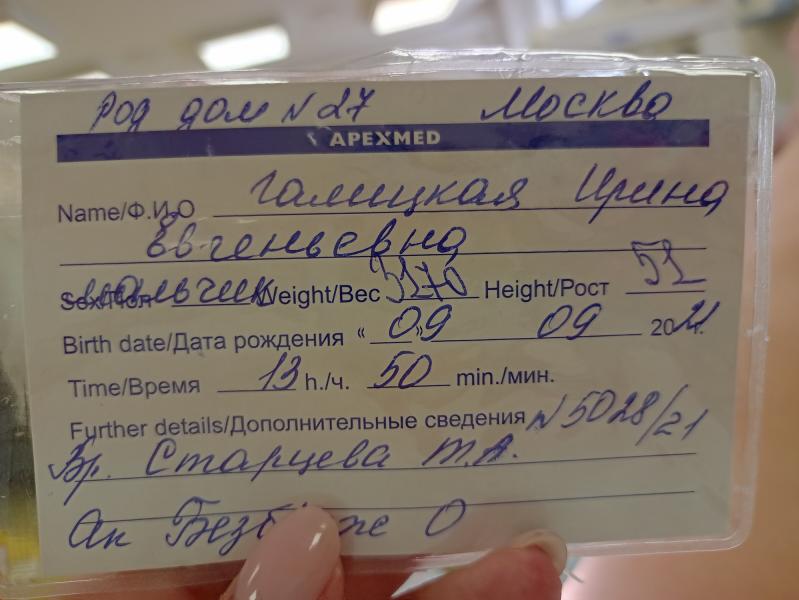 Род дом N 27 Москва
APEXMED
Name/Ф.И.О Галицкая Ирина
Евгеньевна
Sex/Пол мальчик Weight/Вес 3170 Height/Рост 51
Birth date/Дата рождения « 09 » 09 2021г.
Time/Время 13 h./ч. 50 min./мин.
Further details/Дополнительные сведения N 5028/21
Вр. Старцева Т.А.
Ак О